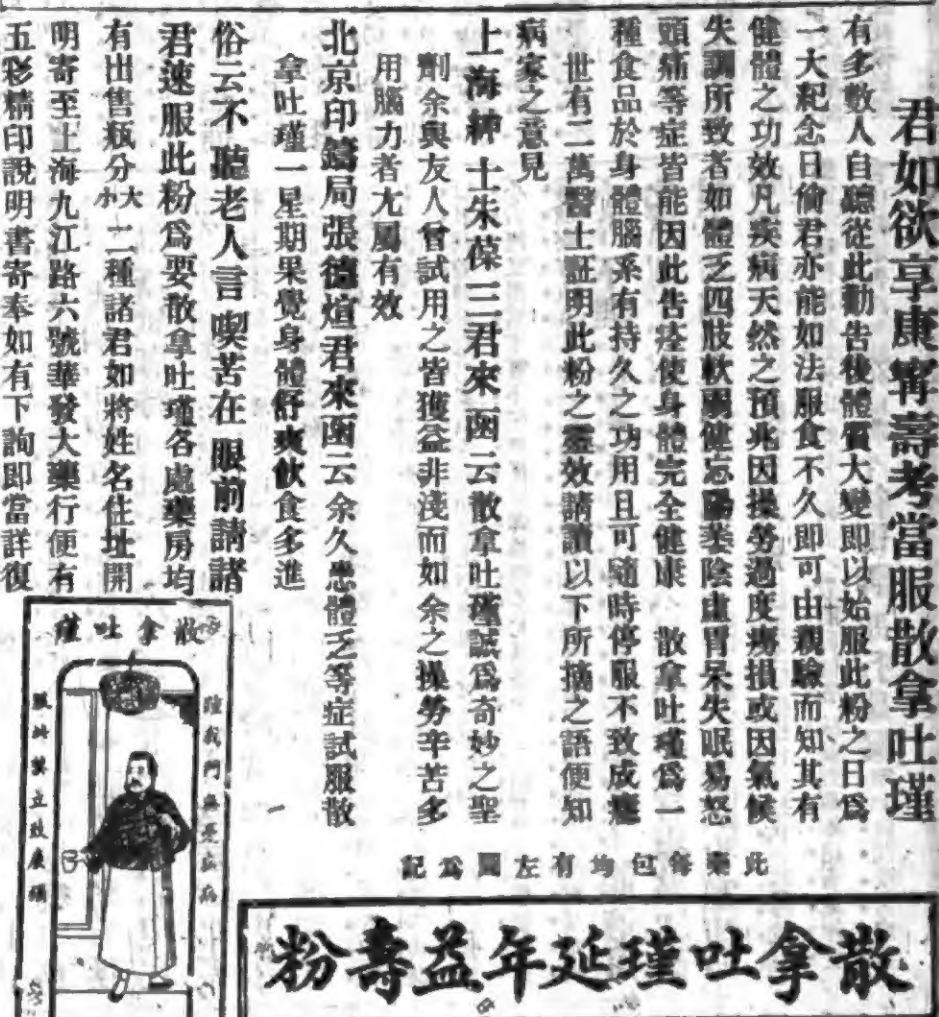 君如欲享康甯壽考當服散拿吐瑾
有多數人自聽從此勸告後體質大變即以始服此粉之日爲
一大紀念日倘君亦能如法服食不久即可由親驗而知其有
健體之功效凡疾病天然之預兆因操勞過度癆損或因氣候
失調所致者如體乏四肢軟弱健忘陽萎陰虛胃呆失眠易怒
頭痛等症皆能因此告痊使身體完全健康 散拿吐瑾爲一
種食品於身體腦系有持久之功用且可隨時停服不致成癮
世有二萬醫士証明此粉之靈效請讀以下所摘之語便知
病家之意見
上海紳士朱葆三君來函云散拿吐瑾誠爲奇妙之聖
劑余與友人曾試用之皆獲益非淺而如余之操勞辛苦多
用腦力者尤屬有效
北京印鑄局張德煊君來函云余久患體乏等症試服散
拿吐瑾一星期果覺身體舒爽飲食多進
俗云不聽老人言喫苦在眼前請諸
君速服此粉爲要散拿吐瑾各處藥房均
有出售瓶分大小二種諸君如將姓名住址開
明寄至上海九江路六號華發大藥行便有
五彩精印說明書寄奉如有下詢即當詳復
此藥每包均有左圖爲記
散拿吐瑾
我門無
服此藥立致康強
散拿吐瑾延年益壽粉